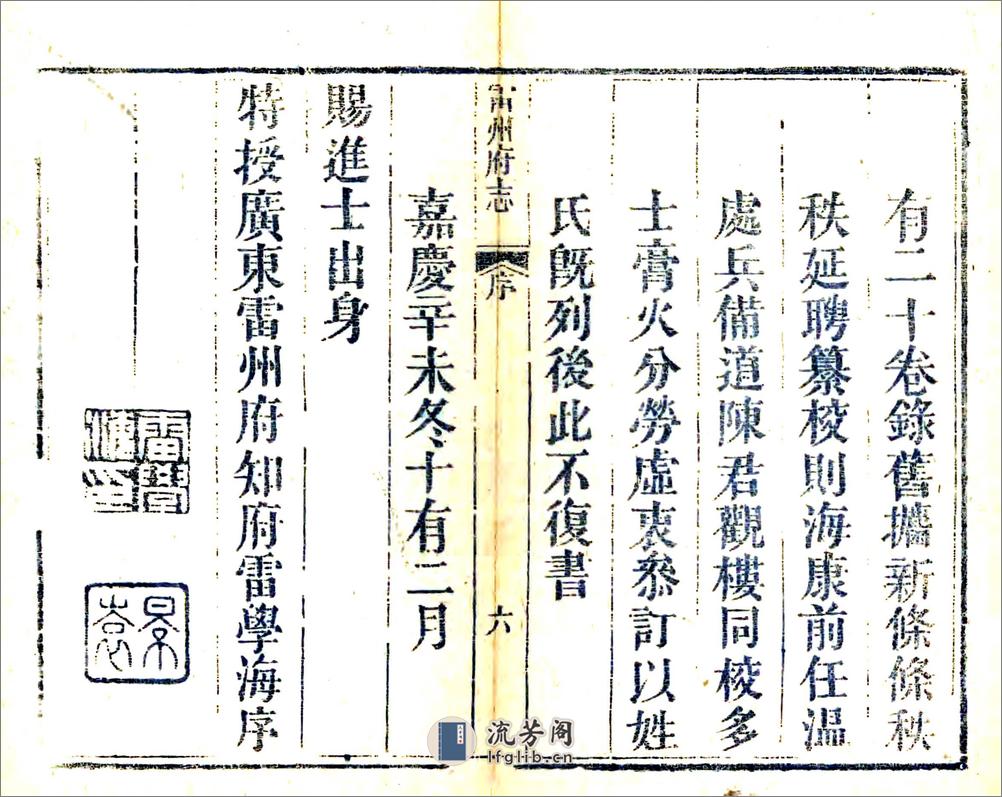 有二十卷錄舊攟新條條秩
秩延聘纂校則海康前任溫
處兵備道陳君觀樓同校多
士膏火分勞虛衷叅訂以姓
氏旣列後此不復書
雷州府志
序
六
嘉慶辛未冬十有二月
賜進士出身
特授廣東雷州府知府雷學海序
流芳阁
lfglib.cn